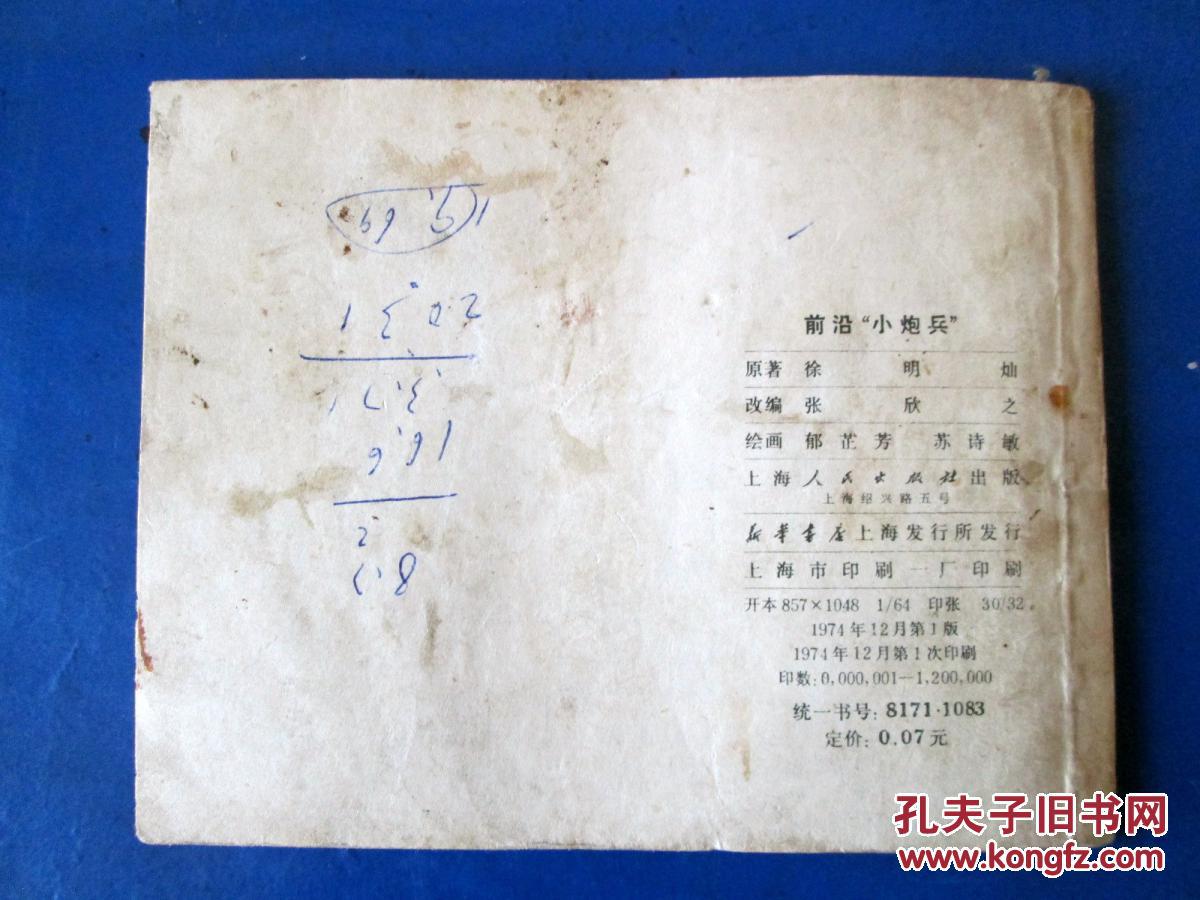 前沿“小炮兵”
原著 徐明灿
改编 张欣之
绘画 郁芷芳 苏诗敏
上海人民出版社出版
上海绍兴路五号
新华书店上海发行所发行
上海市印刷一厂印刷
开本 857×1048 1/64 印张 30/32
1974年12月第1版
1974年12月第1次印刷
印数：0,000,001—1,200,000
统一书号：8171·1083
定价：0.07元
孔夫子旧书网
www.kongfz.com